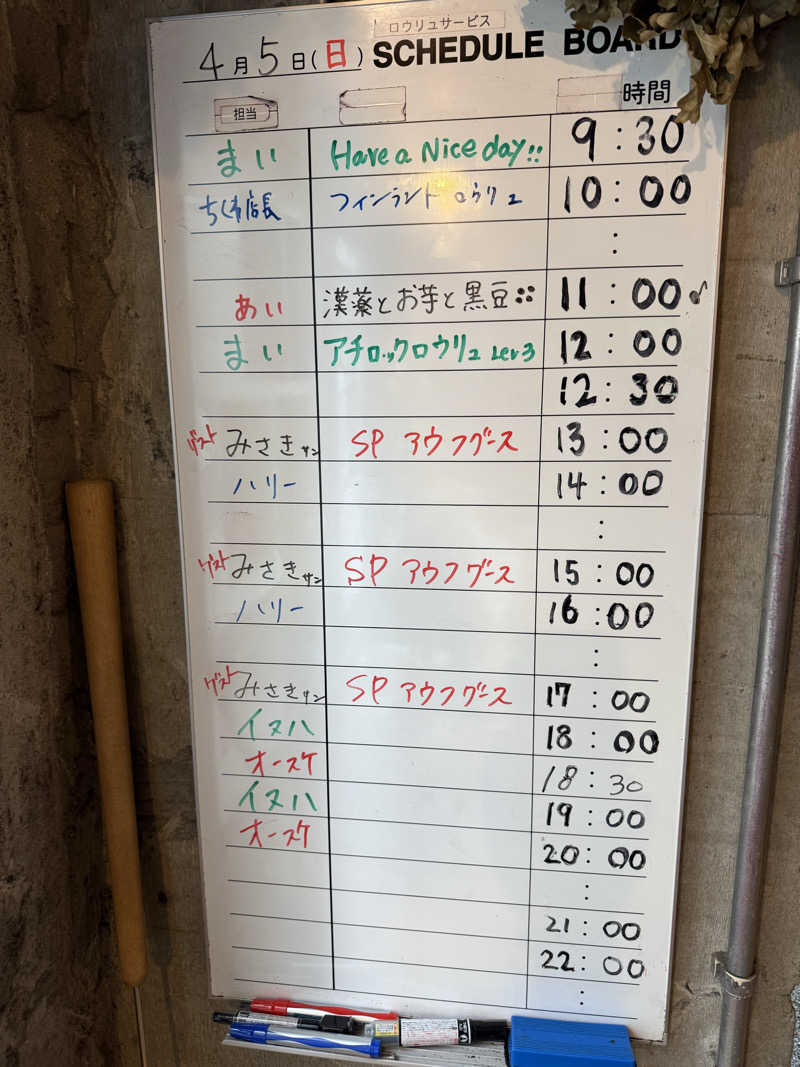 ロウリュサービス
4月5日(日) SCHEDULE BOARD
担当 時間
まい Have a Nice day!! 9:30
店長 フィンラント ロウリュ 10:00
:
あい 漢薬とお芋と黒豆 11:00♪
まい アチロックロウリュ Lev3 12:00
12:30
ゲスト みさきサン SP アウフグース 13:00
ハリー 14:00
:
ゲスト みさきサン SP アウフグース 15:00
ハリー 16:00
:
ゲスト みさきサン SP アウフグース 17:00
イヌハ 18:00
オースケ 18:30
イヌハ 19:00
オースケ 20:00
:
21:00
22:00
: